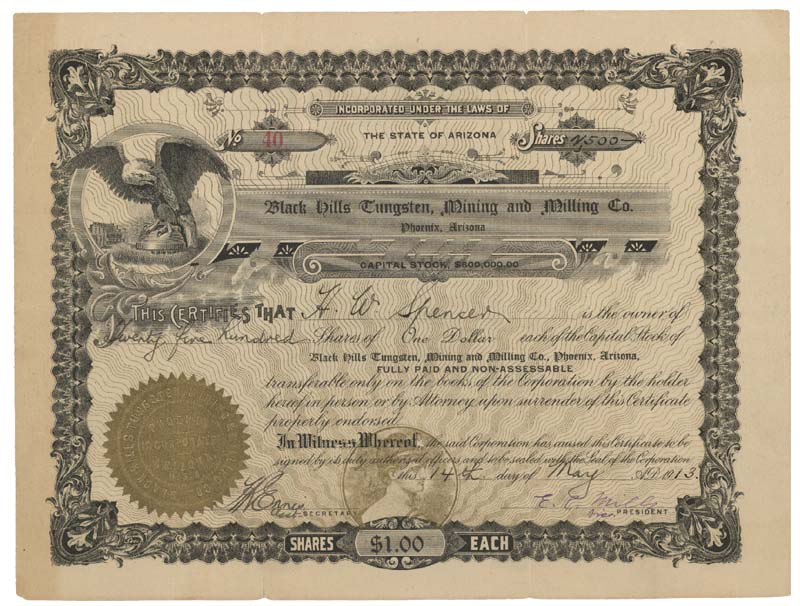 INCORPORATED UNDER THE LAWS OF
No 40
THE STATE OF ARIZONA
Shares 2,500
Black Hills Tungsten, Mining and Milling Co.
Phoenix, Arizona
CAPITAL STOCK, $600,000.00
THIS CERTIFIES THAT H. W. Spencer is the owner of
Twenty five hundred Shares of One Dollar each of the Capital Stock of
Black Hills Tungsten, Mining and Milling Co., Phoenix, Arizona,
FULLY PAID AND NON-ASSESSABLE
transferable only on the books of the Corporation by the holder
hereof in person or by Attorney upon surrender of this Certificate
properly endorsed.
In Witness Whereof, the said Corporation has caused this Certificate to be
signed by its duly authorized officers and to be sealed with the Seal of the Corporation
this 14th day of May A.D. 1913.
Asst. SECRETARY
E. E. Mills
Vice PRESIDENT
SHARES $1.00 EACH